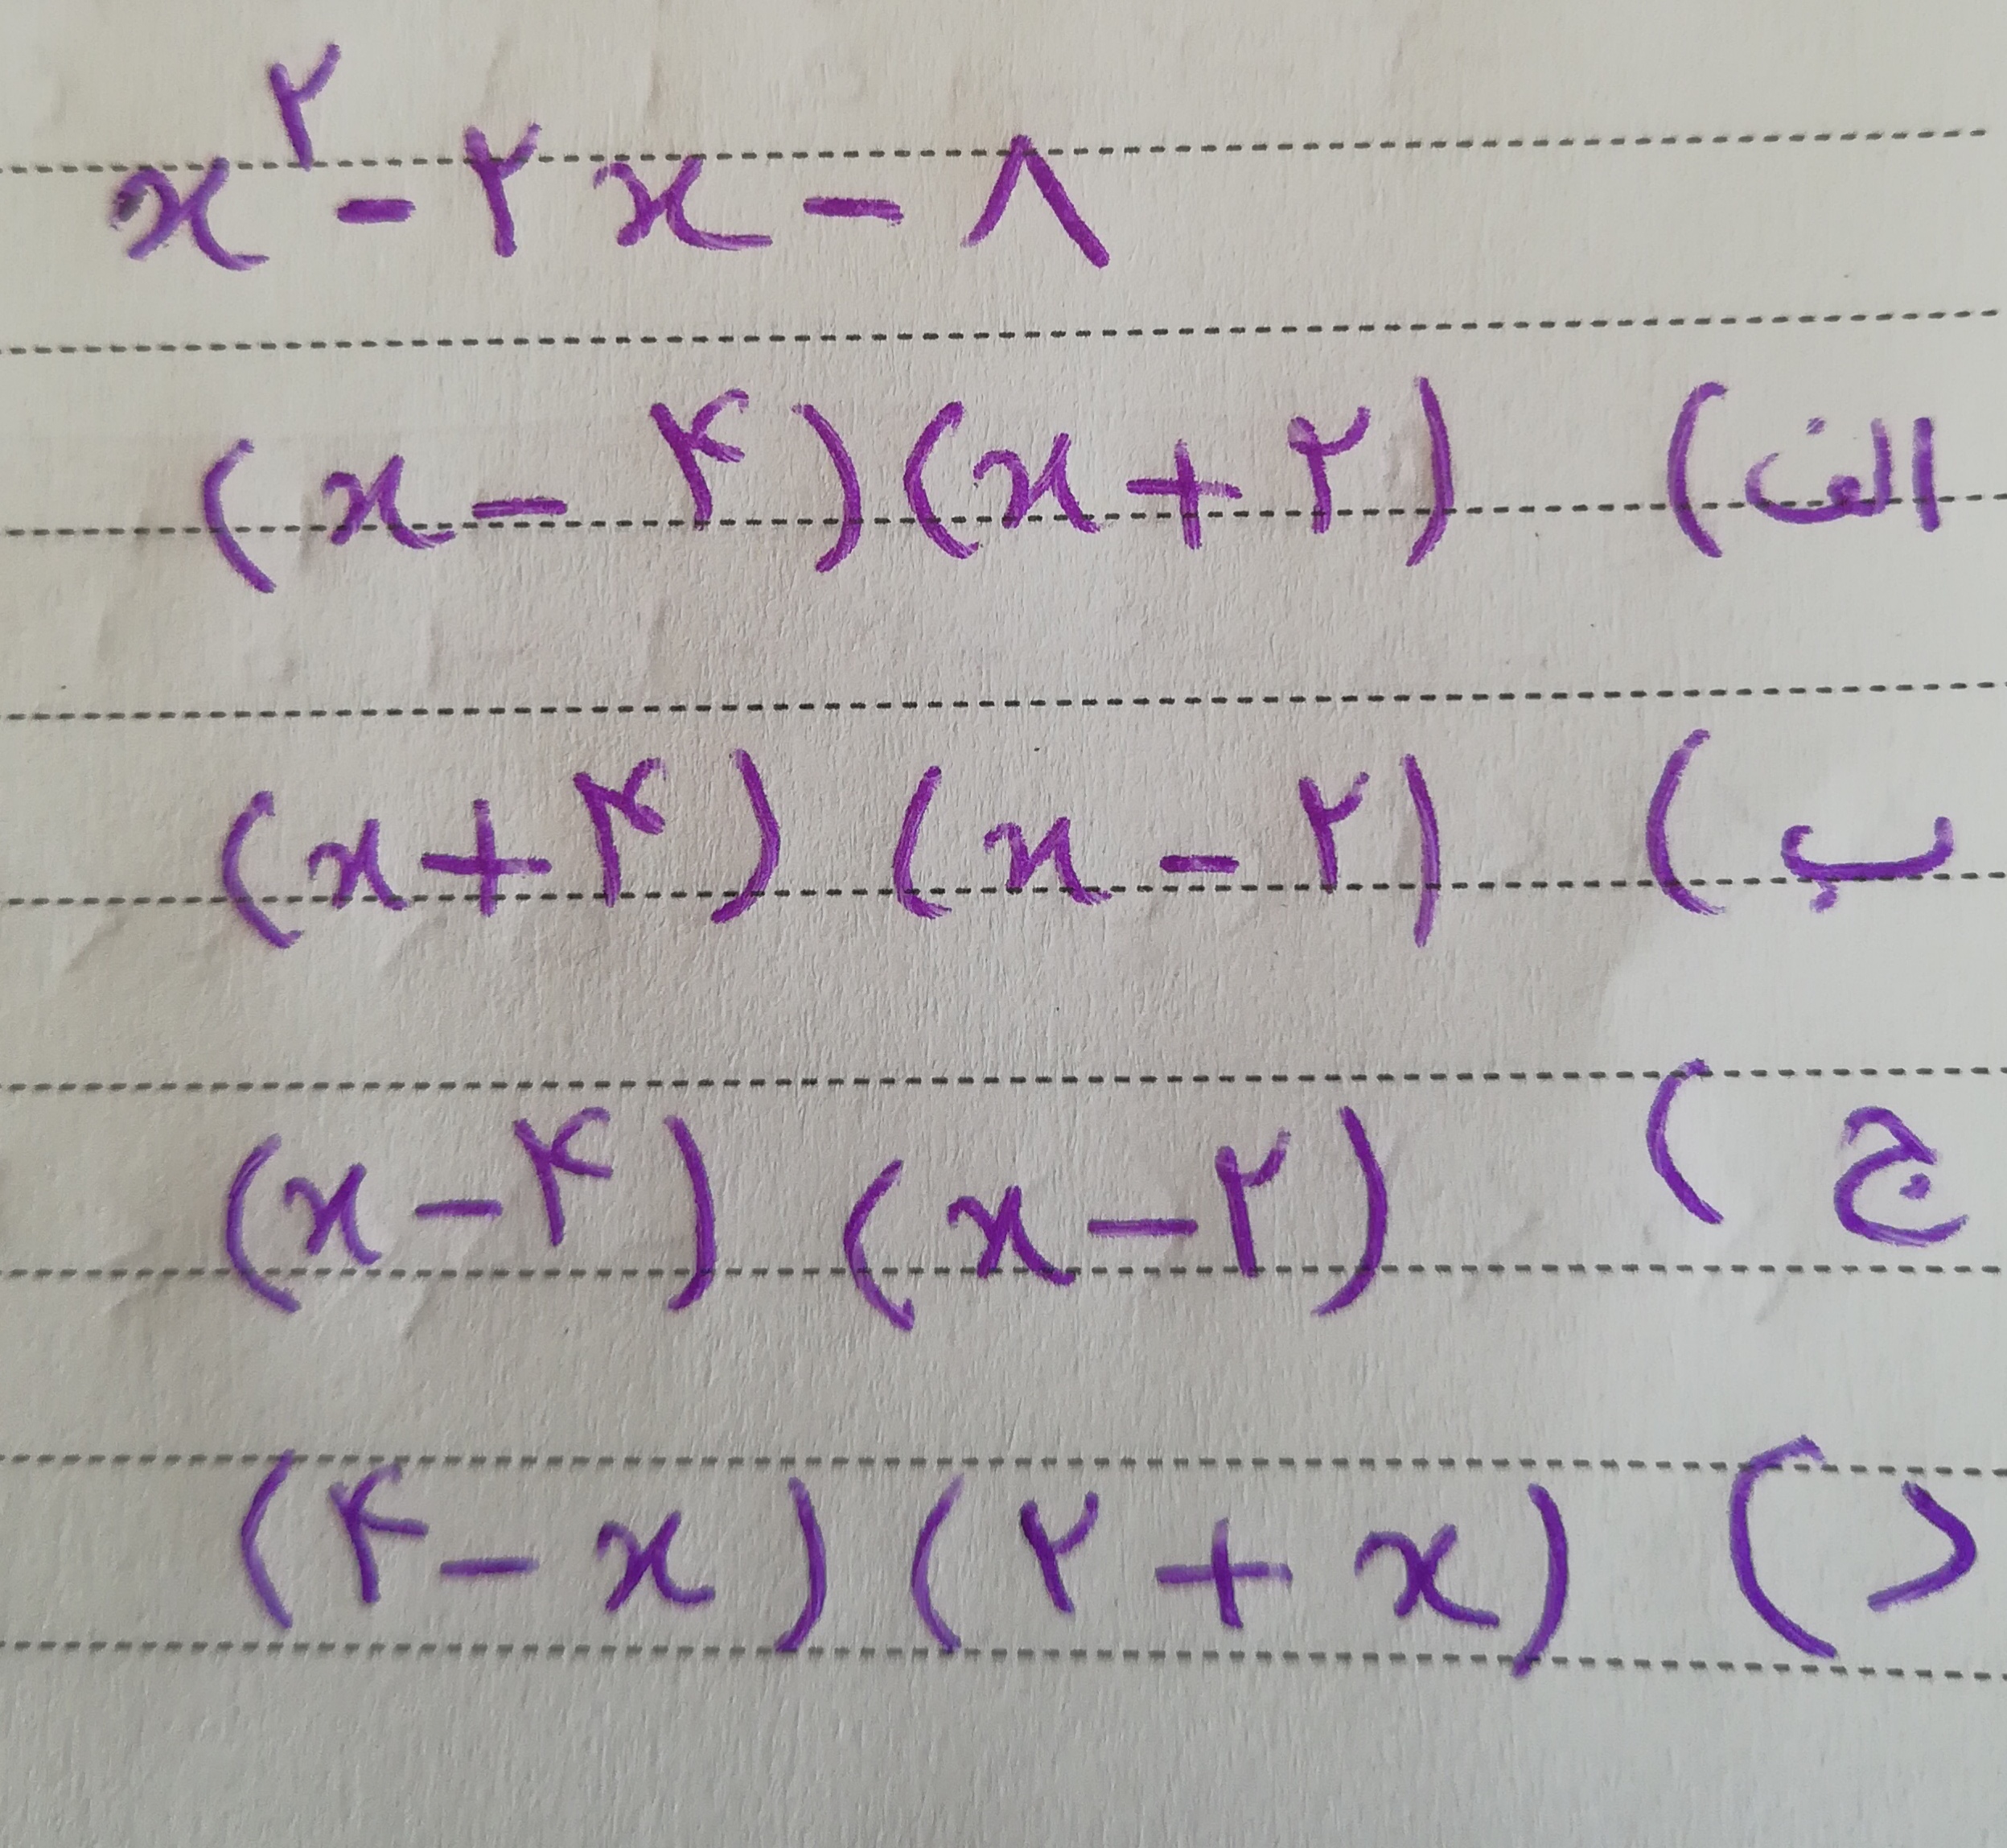 x^۲ - ۲x - ۸
الف) (x - ۴)(x + ۲)
ب) (x + ۴)(x - ۲)
ج) (x - ۴)(x - ۲)
د) (۴ - x)(۲ + x)